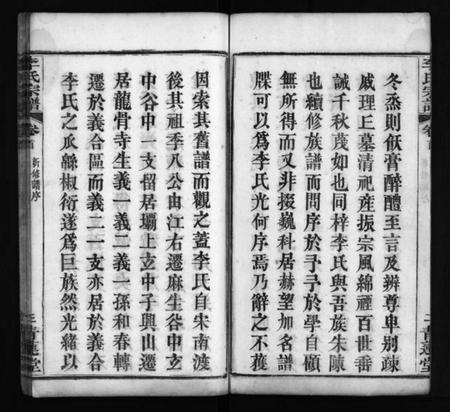 冬烝則飫膏醉醴至言及辨尊卑別疎
戚理工墓清祀產振宗風綿禋百世畨
誠千秋茂如也同梓李氏與吾族朱陳
也續修族譜而問序於予予於學自頋
無所得而又非掇巍科居赫望加名譜
牒可以爲李氏光何序焉乃辭之不獲
李氏宗譜
卷首
新修譜序
三
青蓮堂
因索其舊譜而觀之蓋李氏自宋南渡
後其祖季八公由江右遷麻生谷中立
中谷中一支留居壩上立中子興山遷
居龍骨寺生義一義二義一孫和春轉
遷於義合區而義二一支亦居於義合
李氏之瓜緜椒衍遂爲巨族然光緒以